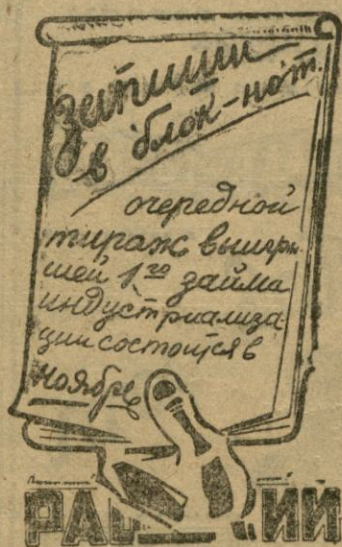 запиши
в блок-нот.
очередной
тираж выигры-
шей 1го займа
индустриализа-
ции состоится в
ноябре